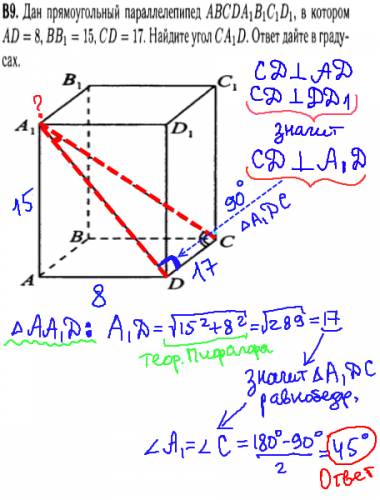 В9. Дан прямоугольный параллелепипед ABCDA₁B₁C₁D₁, в котором
AD = 8, BB₁ = 15, CD = 17. Найдите угол CA₁D. Ответ дайте в граду-
сах.
CD ⊥ AD
CD ⊥ DD₁
значит
CD ⊥ A₁D
90°
△A₁DC
?
B₁
C₁
A₁
D₁
15
B
C
17
A
D
8
△AA₁D: A₁D = √15²+8² = √289 = 17
теор. Пифагора
значит △A₁DC
равнобедр.
∠A₁=∠C = 180°-90° / 2 = 45°
Ответ